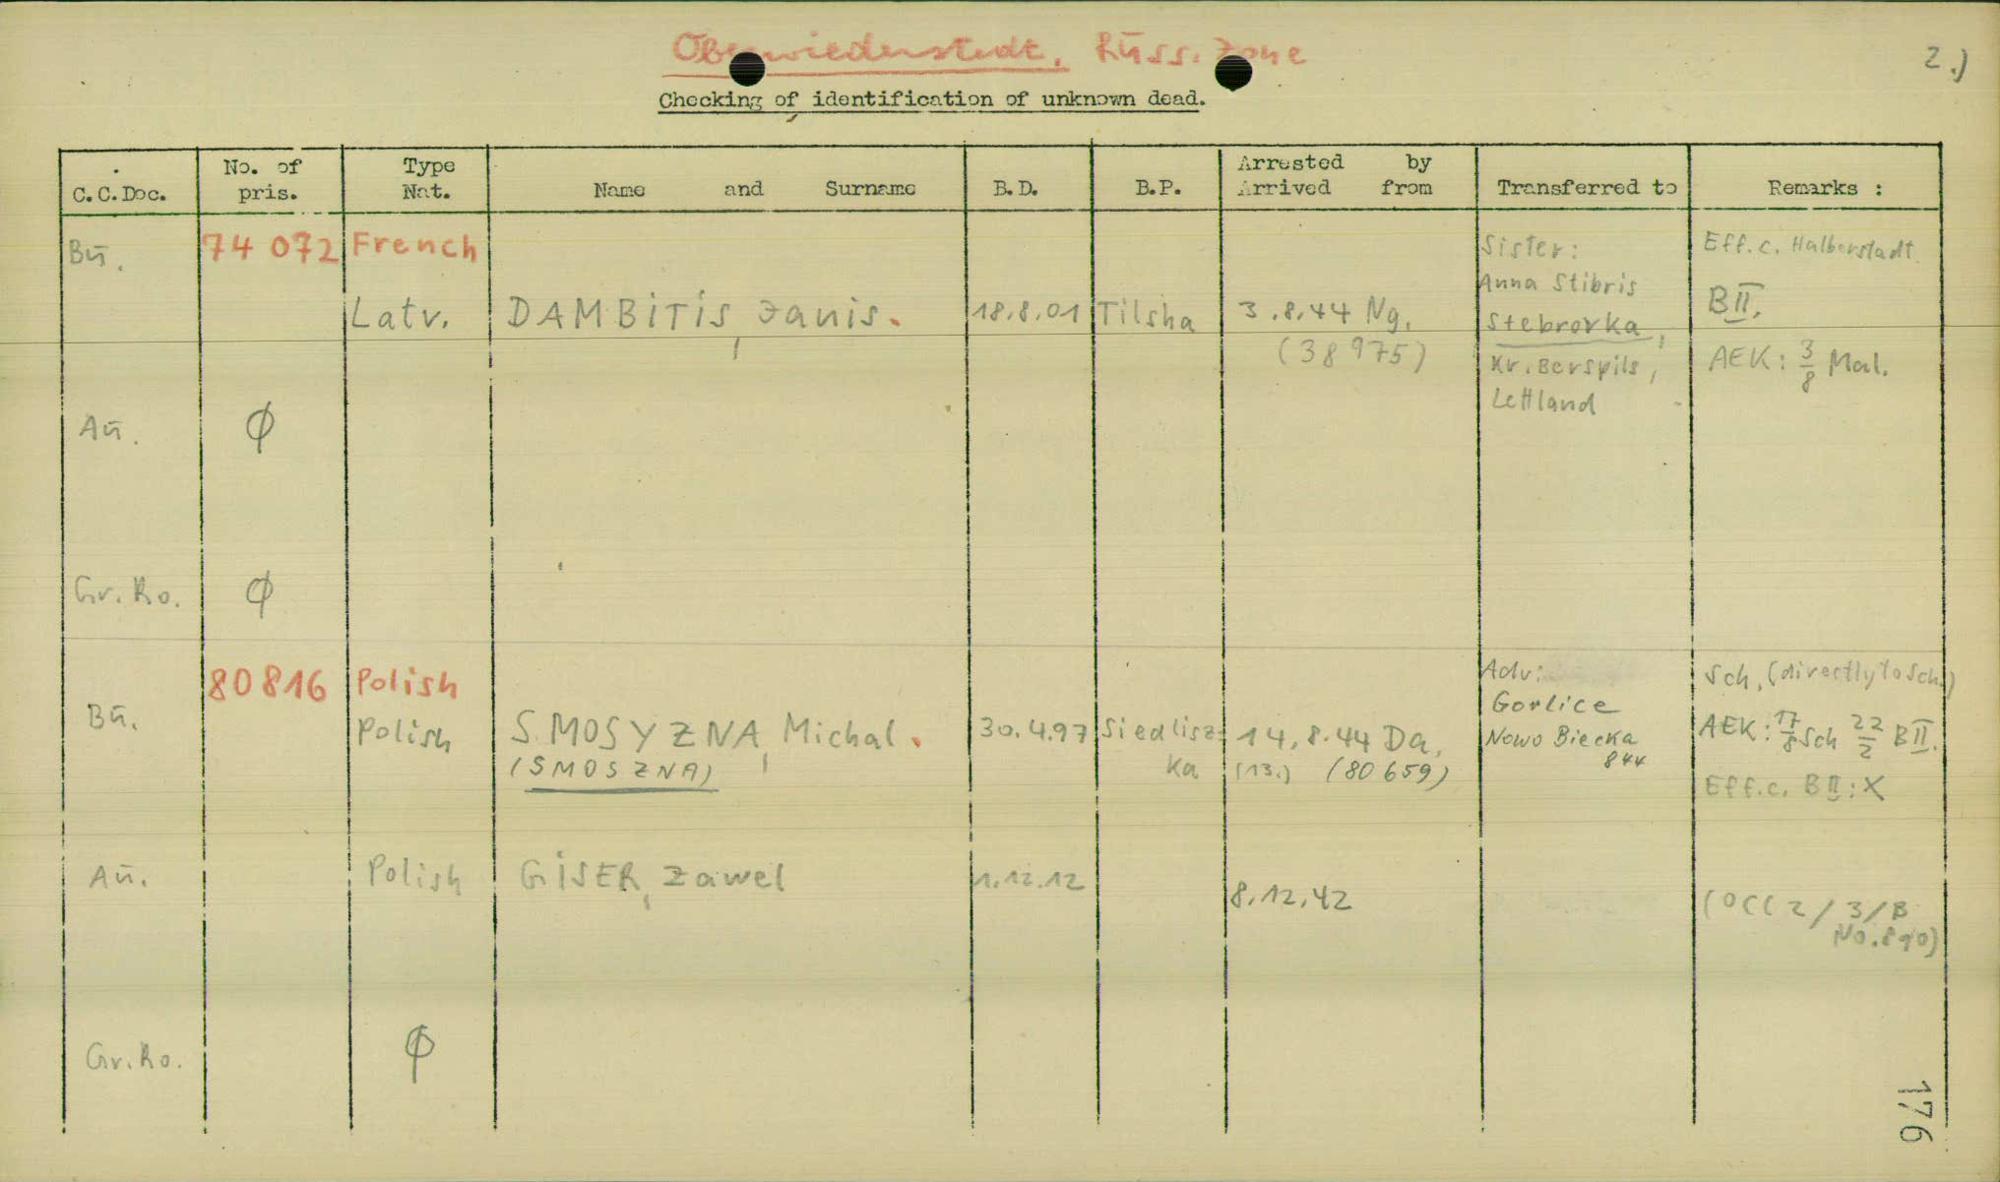 Oberwiederstedt, Russ. Zone
2.)
Checking of identification of unknown dead.
C.C.Doc. No. of pris. Type Nat. Name and Surname B.D. B.P. Arrested by Arrived from Transferred to Remarks :
Bū. 74 072 French Sister: Eff.c. Halberstadt
Anna Stibris
Latv. DAMBiTiS, Janis. 18.8.01 Tilsha 3.8.44 Ng. Stebrovka, BII.
(38975) Kr. Berspils, AEK: 3/8 Mal.
Lettland
Aū. φ
Gr.Ro. φ
80816 Polish Adv: Sch, (directly to Sch.)
Gorlice
Bū. Polish SMOSYZNA, Michal. 30.4.97 Siedlisz- 14.8.44 Da. Nowo Biecka AEK: 17/8 Sch 22/2 BII.
(SMOSZNA) ka (13.) (80659) 844 Eff.c. BII: X
Aū. Polish GiSER, Zawel 1.12.12 8.12.42 (OCC2/3/B
No.890)
Gr.Ro. φ
176